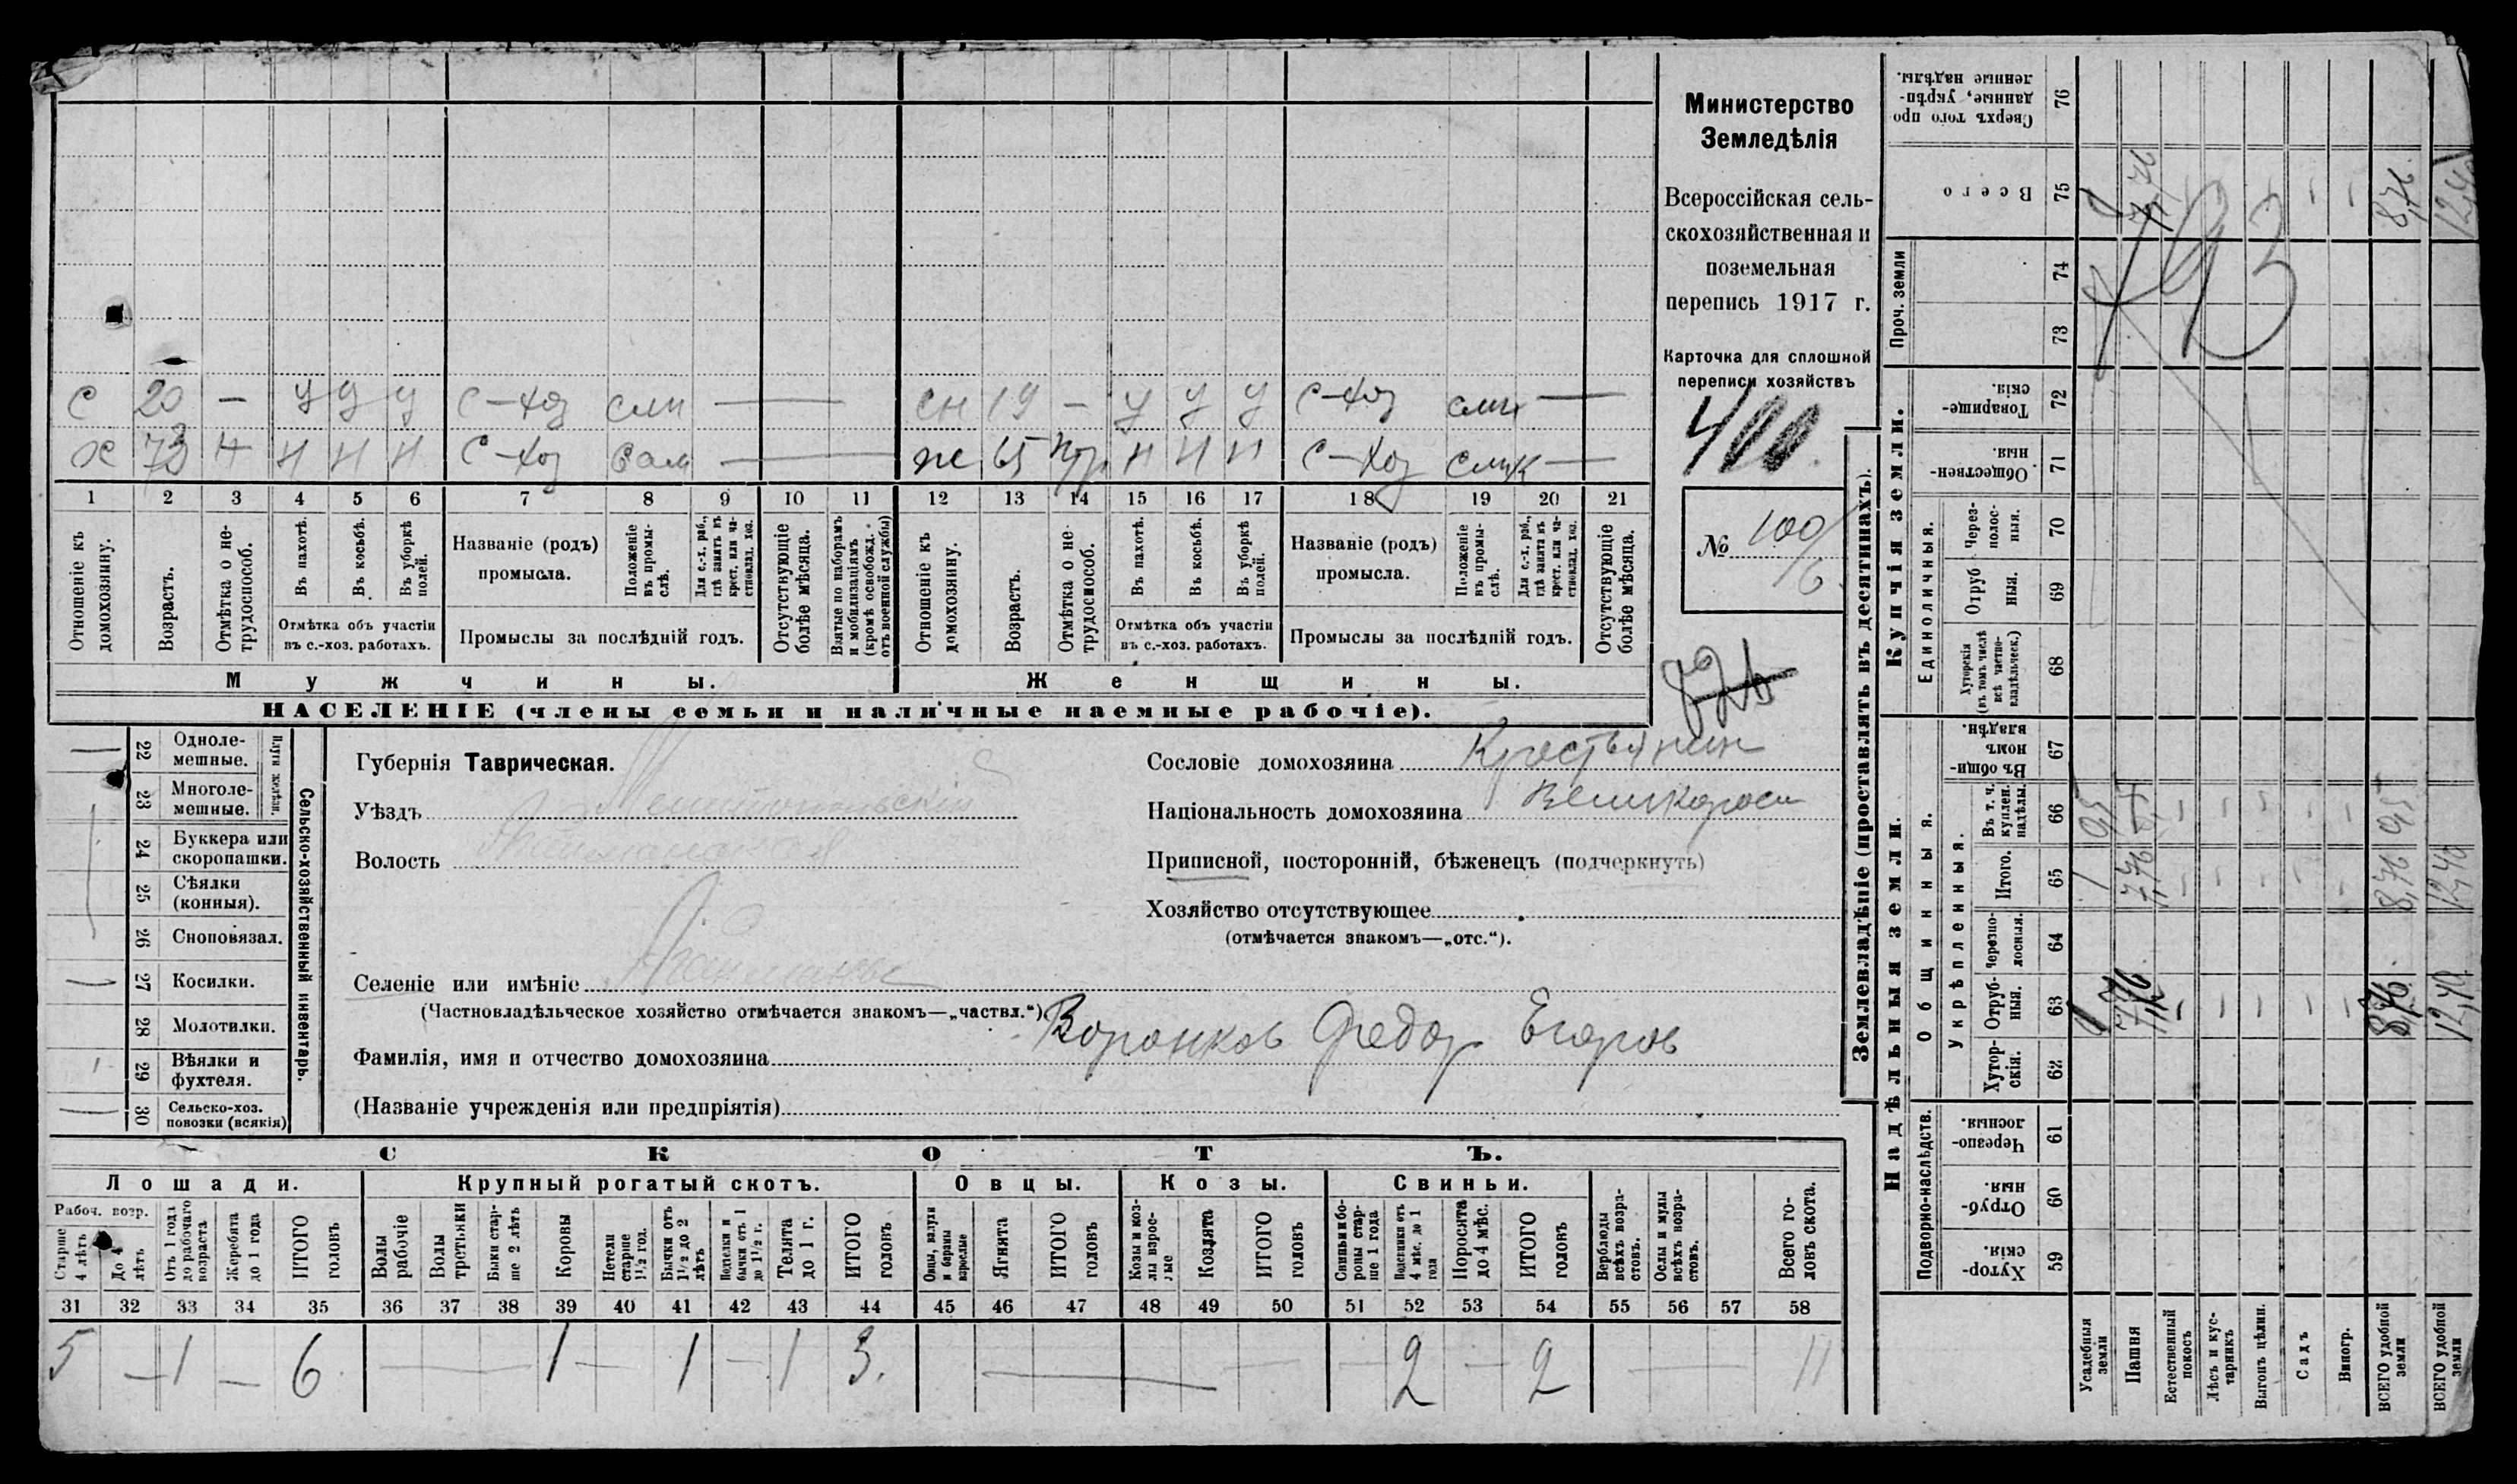 Министерство
Земледѣлія
Всероссійская сель-
скохозяйственная и
поземельная
перепись 1917 г.
Карточка для сплошной
переписи хозяйствъ
400
№ 100/6
С 20 — У У У С-хоз 
сн 19 — У У У С-хоз
Х 73 Н Н Н Н С-хоз
ж 65 Н Н Н С-хоз
1 2 3 4 5 6 7 8 9 10 11 12 13 14 15 16 17 18 19 20 21
Отношеніе къ домохозяину.
Возрастъ.
Отмѣтка о не-трудоспособ.
Въ пахотѣ.
Въ косьбѣ.
Въ уборкѣ полей.
Отмѣтка объ участіи въ с.-хоз. работахъ.
Названіе (родъ) промысла.
Положеніе въ промы-слѣ.
Для с.-х. раб., гдѣ занятъ въ крест. или ча-стновлад. хоз.
Промыслы за послѣдній годъ.
Отсутствующіе болѣе мѣсяца.
Взятые по наборамъ и мобилизаціямъ (кромѣ освобожд. отъ военной службы)
Отношеніе къ домохозяину.
Возрастъ.
Отмѣтка о не-трудоспособ.
Въ пахотѣ.
Въ косьбѣ.
Въ уборкѣ полей.
Отмѣтка объ участіи въ с.-хоз. работахъ.
Названіе (родъ) промысла.
Положеніе въ промы-слѣ.
Для с.-х. раб., гдѣ занята въ крест. или ча-стновлад. хоз.
Промыслы за послѣдній годъ.
Отсутствующіе болѣе мѣсяца.
Мужчины.
Женщины.
НАСЕЛЕНІЕ (члены семьи и наличные наемные рабочіе).
22 Одноле-мешные.
23 Многоле-мешные.
24 Буккера или скоропашки.
25 Сѣялки (конныя).
26 Сноповязал.
27 Косилки.
28 Молотилки.
29 Вѣялки и фухтеля.
30 Сельско-хоз. повозки (всякія)
Сельско-хозяйственный инвентарь.
Губернія Таврическая.
Уѣздъ Мелитопольскій
Волость
Селеніе или имѣніе
(Частновладѣльческое хозяйство отмѣчается знакомъ—„частвл.“)
Фамилія, имя и отчество домохозяина Воронков Федор Егоров
(Названіе учрежденія или предпріятія)
Сословіе домохозяина Крестьянин
Національность домохозяина Великоросс
Приписной, посторонній, бѣженецъ (подчеркнуть)
Хозяйство отсутствующее
(отмѣчается знакомъ—„отс.“).
СКОТЪ.
Лошади.
Крупный рогатый скотъ.
Овцы.
Козы.
Свиньи.
Рабоч. возр.
Старше 4 лѣтъ
До 4 лѣтъ
Отъ 1 года до рабочаго возраста
Жеребята до 1 года
ИТОГО головъ
Волы рабочіе
Волы третьяки
Быки стар-ше 2 лѣтъ
Коровы
Нетели старше 1½ год.
Бычки отъ 1½ до 2 лѣтъ
Подтелки и бычки отъ 1 до 1½ г.
Телята до 1 г.
ИТОГО головъ
Овцы, валухи и бараны взрослые
Ягнята
ИТОГО головъ
Козы и коз-лы взрос-лые
Козлята
ИТОГО головъ
Свиньи и бо-ровы стар-ше 1 года
Подсвинки отъ 4 мѣс. до 1 года
Поросята до 4 мѣс.
ИТОГО головъ
Верблюды всѣхъ возра-стовъ.
Ослы и мулы всѣхъ возра-стовъ.
Всего го-ловъ скота.
31 32 33 34 35 36 37 38 39 40 41 42 43 44 45 46 47 48 49 50 51 52 53 54 55 56 57 58
5 — 1 — 6 — 1 — 1 — 1 3. — — 2 — 2 — 11
Землевладѣніе (проставлять въ десятинахъ).
Надѣльныя земли.
Купчія земли.
Проч. земли
Подворно-наслѣдств.
Общинныя.
Укрѣпленныя.
Единоличныя.
59 Хутор-скія.
60 Отруб-ныя.
61 Черезпо-лосныя.
62 Хутор-скія.
63 Отруб-ныя.
64 Черезпо-лосныя.
65 Итого.
66 Въ т. ч. куплен. надѣлы.
67 Въ общин-номъ владѣн.
68 Хуторскія (въ томъ числѣ всѣ частно-владѣльческ.)
69 Отруб-ныя.
70 Через-полос-ныя.
71 Обществен-ныя.
72 Товарище-скія.
73
74
75 Всего
76 Сверхъ того про-данные, укрѣп-ленные надѣлы.
Усадебныя земли
Пашня
Естественный покосъ
Лѣсъ и кус-тарникъ
Выгонъ цѣлин.
Садъ
Виногр.
ВСЕГО удобной земли
ВСЕГО удобной земли
8,76
12,40